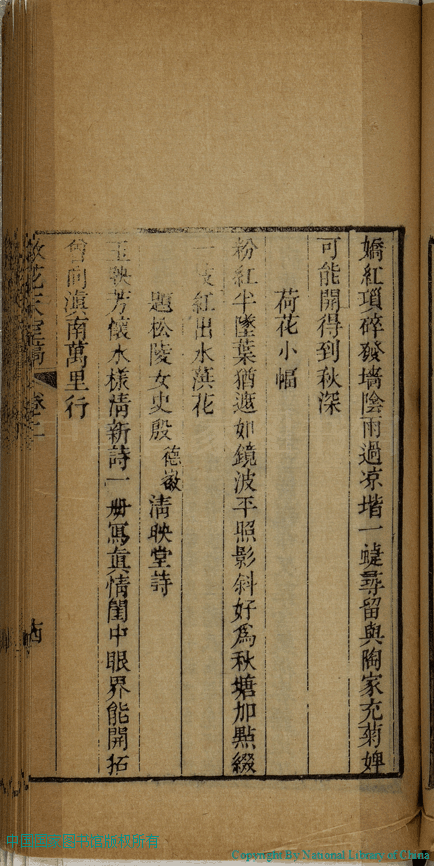 嬌紅瑣碎發墻陰雨過凉堦一蜨尋留與陶家充菊婢
可能開得到秋深
荷花小幅
粉紅半墜葉猶遮如鏡波平照影斜好爲秋塘加點綴
一枝紅出水葓花
題松陵女史殷德徽淸映堂詩
玉映芳懷水樣淸新詩一册寫眞情閨中眼界能開拓
曾向滇南萬里行
花 卷二
中国国家图书馆版权所有
Copyright By National Library of China